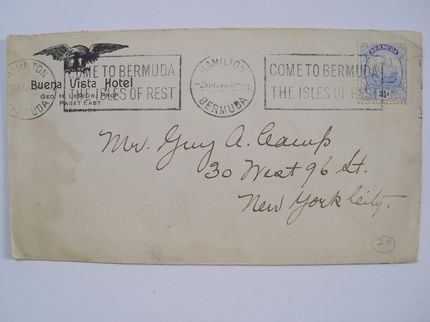 HAMILTON
BERMUDA
COME TO BERMUDA
THE ISLES OF REST
HAMILTON
BERMUDA
COME TO BERMUDA
THE ISLES OF REST
BERMUDA
Buena Vista Hotel
PAGET EAST
BERMUDA
Mr. Guy A. Camp
30 West 96 St.
New York City.
20